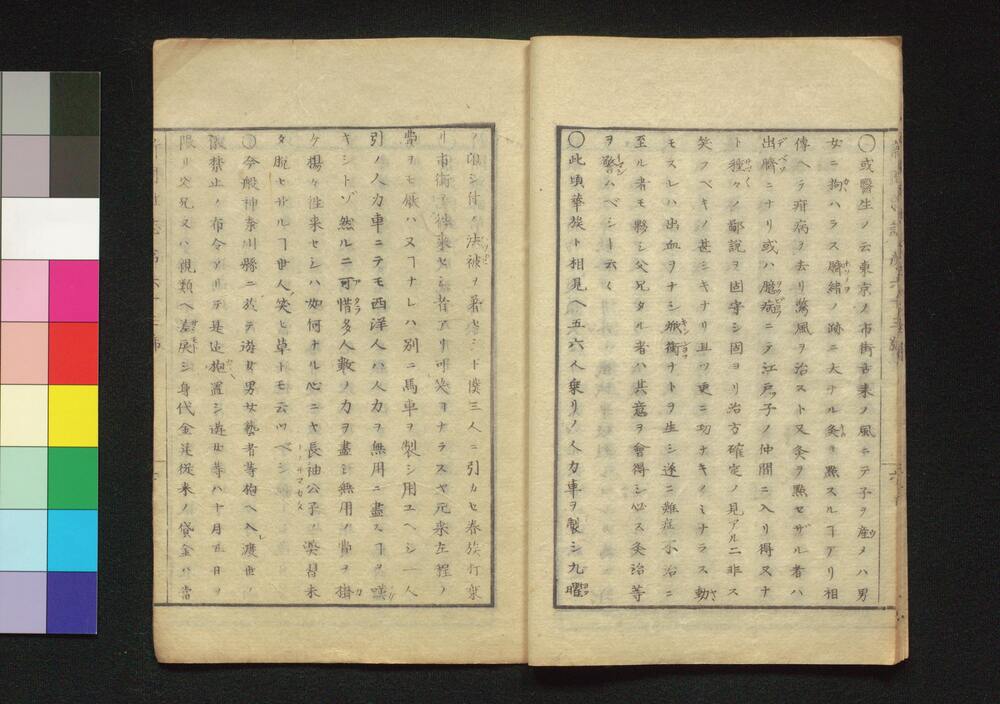 ○或醫生ノ云東京ノ市街古来ノ風ニテ子ヲ産メハ男
女ニ拘ハラス臍緒ノ跡ニ大ナル灸ヲ點スルヿアリ相
傳ヘテ疳病ヲ去リ驚風ヲ治スト又灸ヲ點セザル者ハ
出臍ニナリ或ハ臆病ニテ江戸ッ子ノ仲間ニ入リ得又ナ
ト種々ノ鄙説ヲ固守シ固ヨリ治方確定ノ見アルニ非ス
笑フベキノ甚シキナリ且ツ更ニ功ナキノミナラス動
モスレハ出血ヲナシ衂衝ナトヲ生シ遂ニ難症不治ニ
至ル者モ夥シ父兄タル者ハ共意ヲ會得シ必ス灸治等
ヲ警ハベシト云々
○此頃華族ト相見ヘ五六人乗リノ人力車ヲ製シ九曜
ノ限シ付ノ法被ヲ着キシト僕三人ニ引カセ春族打乗
リ市街ヲ往来セシ者アリ可笑ヿナラスヤ元来左程ノ
費ヲモ厭ハヌヿナレハ別ニ馬車ヲ製シ用ユヘシ一人
引ノ人力車ニテモ西洋人ハ人力ヲ無用ニ盡スヿヲ嘆
キシトゾ然ルニ可惜多人數ノ力ヲ盡シ無用ノ費ヲ掛
ケ揚々往来セシハ如何ナル心ニヤ長袖公子ノ獘習未
タ脱セサルヿ世人笑ヒ草トモ云ツベシ
○今般神奈川縣ニ於テ遊女男女藝者等抱ヘ入渡世ノ
嚴禁止ノ布令アリテ是迠抱置シ遊女等ハ十月五日ヲ
限リ父兄又ハ親類ヘ差戻シ身代金是従来ノ貸金ハ當